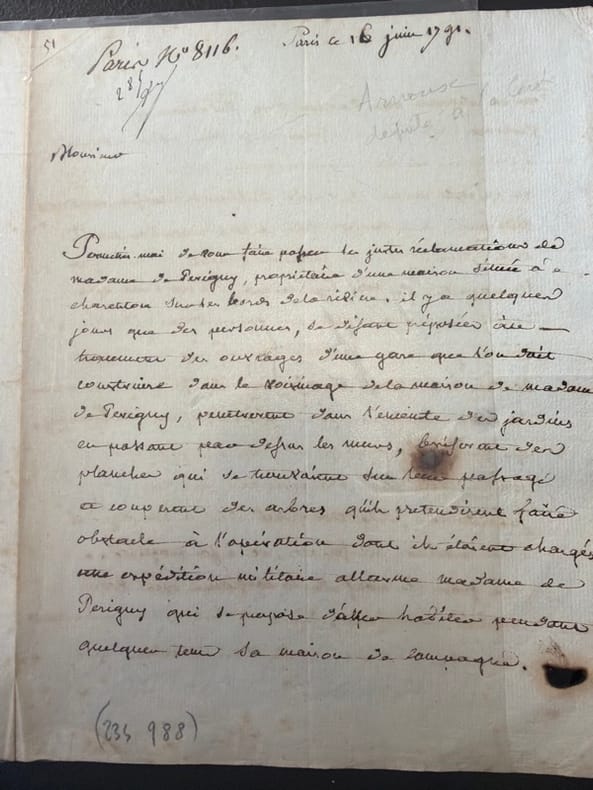 51
Paris N° 8116.
Paris ce 16 juin 1791.
Arnoux
député à
Monsieur
Permettés-moi de vous faire passer les justes réclamations de
madame de Perigny, propriétaire d'une maison située à
charenton sur les bords de la rivière. il y a quelques
jours que des personnes, se disant préposées au
traçement des ouvrages d'une gare que l'on doit
construire dans le voisinage de la maison de madame
de Perigny, penetrerent dans l'enceinte des jardins
en passant par dessus les murs, briserent des
planches qui se trouvaient sur leur passage
et couperent des arbres qu'ils pretendirent faire
obstacle à l'opération dont ils étoient chargés
une expédition militaire allarme madame de
Perigny qui se propose d'aller habiter pendant
quelques tems sa maison de campagne.
(235 988)